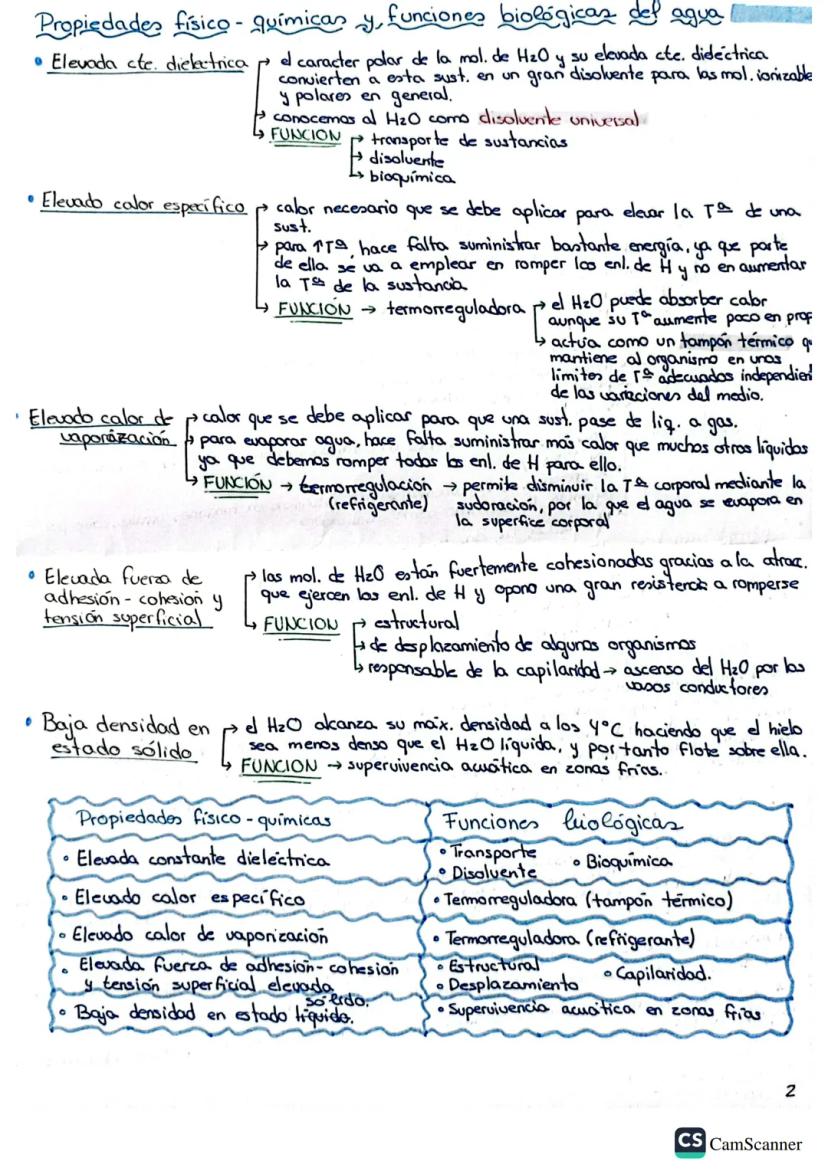 Propiedades físico-químicas y funciones biológicas del agua
• Elevada cte. dielectrica → el caracter polar de la mol. de H2O y su elevada cte. dieléctrica
convierten a esta sust. en un gran disolvente para las mol. ionizable
y polares en general.
→ conocemos al H2O como disolvente universal
→ FUNCIÓN → transporte de sustancias
→ disolvente
→ bioquímica
• Elevado calor específico → calor necesario que se debe aplicar para elevar la Tª de una
sust.
→ para ↑Tª, hace falta suministrar bastante energía, ya que parte
de ella se va a emplear en romper los enl. de H y no en aumentar
la Tª de la sustancia
→ FUNCIÓN → termorreguladora → el H2O puede absorber calor
aunque su Tª aumente poco en prop
→ actúa como un tampón térmico q
mantiene al organismo en unos
límites de Tª adecuados independien
de las variaciones del medio.
• Elevado calor de → calor que se debe aplicar para que una sust. pase de liq. a gas.
vaporización → para evaporar agua, hace falta suministrar más calor que muchos otros líquidos
ya que debemos romper todos los enl. de H para ello.
→ FUNCIÓN → termorregulación → permite disminuir la Tª corporal mediante la
(refrigerante) sudoración, por la que el agua se evapora en
la superfice corporal
• Elevada fuerza de → las mol. de H2O están fuertemente cohesionadas gracias a la atrac.
adhesión-cohesión y que ejercen los enl. de H y opono una gran resistencia a romperse
tensión superficial → FUNCION → estructural
→ de desplazamiento de algunos organismos
→ responsable de la capilaridad → ascenso del H2O por los
vasos conductores
• Baja densidad en → el H2O alcanza su máx. densidad a los 4°C haciendo que el hielo
estado sólido sea menos denso que el H2O líquida, y por tanto flote sobre ella.
→ FUNCION → supervivencia acuática en zonas frías.
Propiedades físico-químicas Funciones biológicas
• Elevada constante dieléctrica • Transporte • Bioquímica
• Disolvente
• Elevado calor específico • Termorreguladora (tampón térmico)
• Elevado calor de vaporización • Termorreguladora (refrigerante)
• Elevada fuerza de adhesión-cohesión • Estructural • Capilaridad.
y tensión superficial elevada • Desplazamiento
sólido.
• Baja densidad en estado líquido. • Supervivencia acuática en zonas frías
2
CS CamScanner